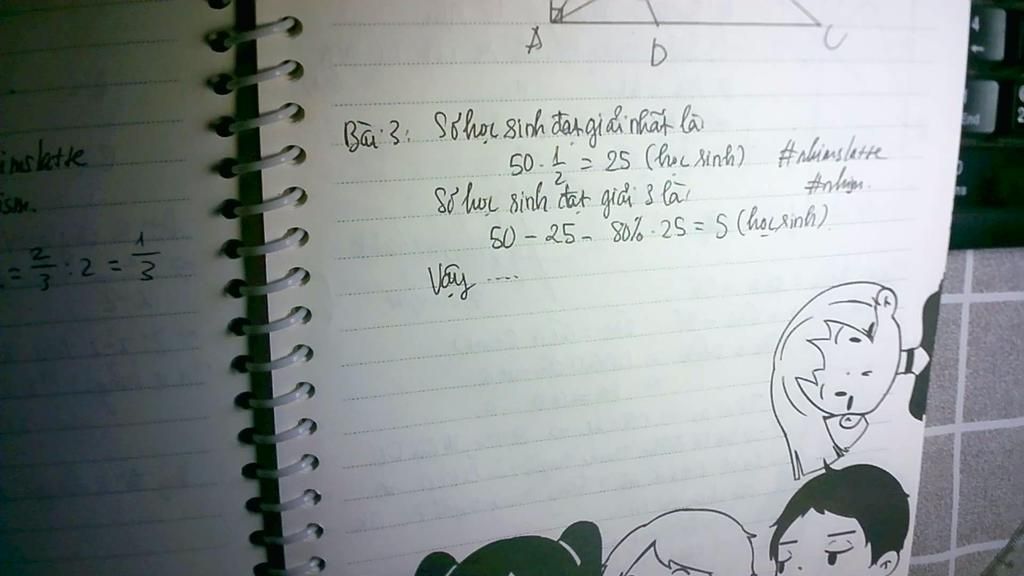 A
D
C
Bài 3: Số học sinh đạt giải nhất là
50 . 1/2 = 25 (học sinh) #nhimslatte
#nhim.
Số học sinh đạt giải 3 là:
50 - 25 - 80% . 25 = 5 (học sinh)
Vậy ....
= 2/3 : 2 = 1/3
End